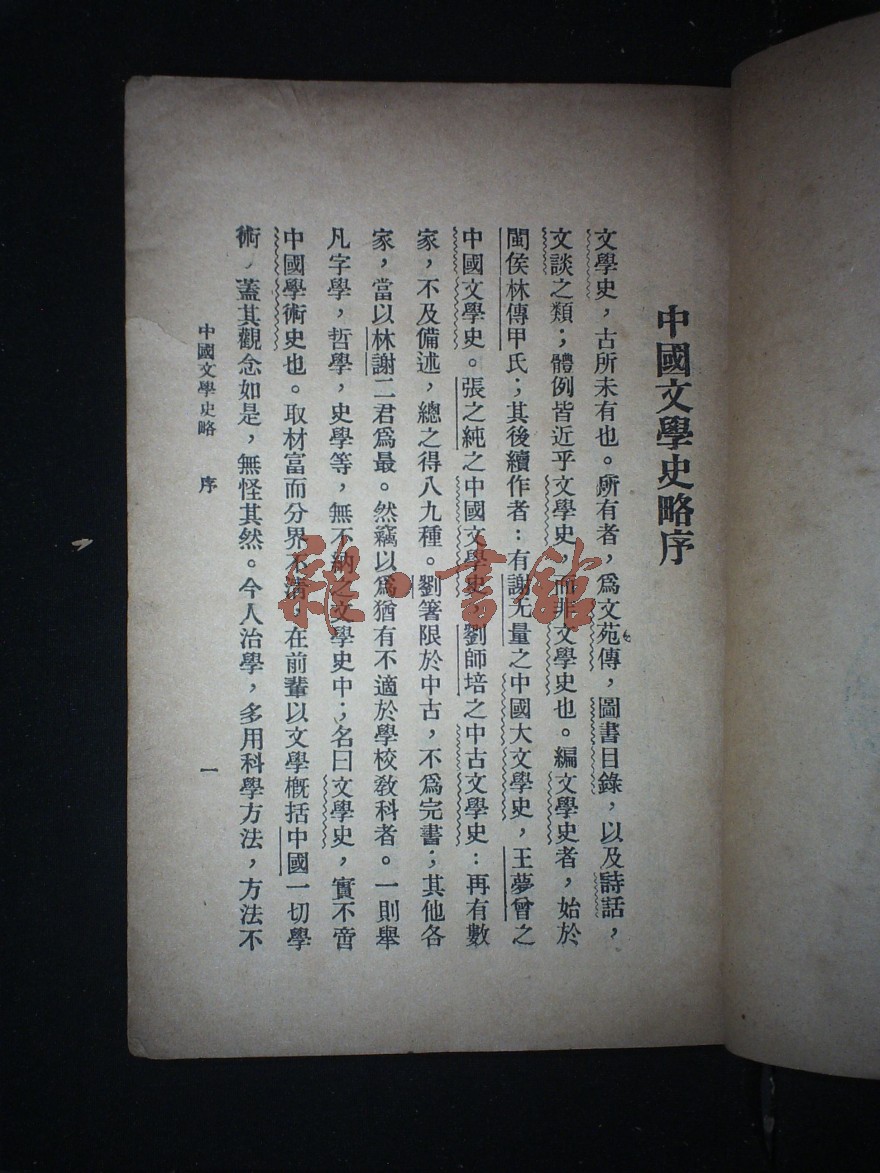 中國文學史略序
文學史，古所未有也。所有者，爲文苑傳，圖書目錄，以及詩話，
文談之類；體例皆近乎文學史，而非文學史也。編文學史者，始於
閩侯林傳甲氏；其後續作者：有謝无量之中國大文學史，王夢曾之
中國文學史。張之純之中國文學史，劉師培之中古文學史：再有數
家，不及備述，總之得八九種。劉箸限於中古，不爲完書；其他各
家，當以林謝二君爲最。然竊以爲猶有不適於學校敎科者。一則舉
凡字學，哲學，史學等，無不納之文學史中；名曰文學史，實不啻
中國學術史也。取材富而分界不清，在前輩以文學槪括中國一切學
術，蓋其觀念如是，無怪其然。今人治學，多用科學方法，方法不
中國文學史略 序
一
雜·書館